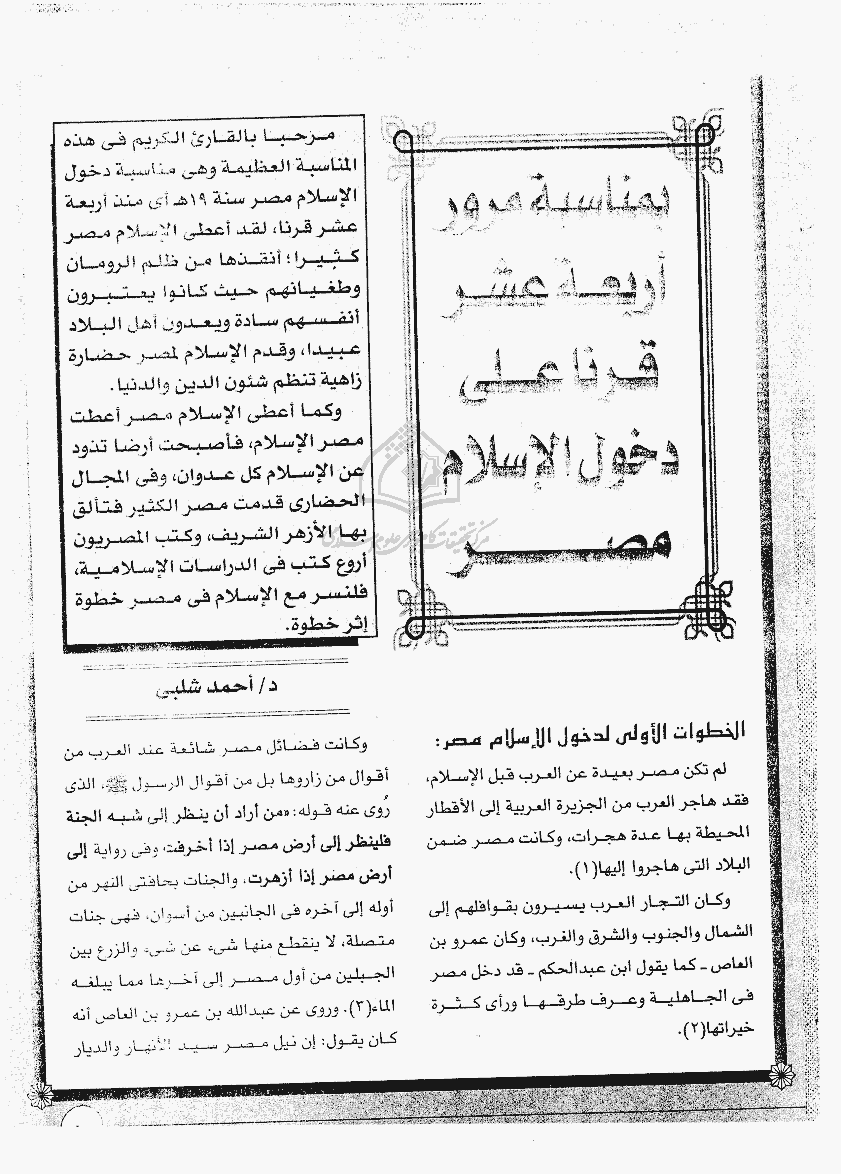 بمناسبة مرور
أربعة عشر
قرنا على
دخول الإسلام
مصر
مرحبا بالقارئ الكريم فى هذه
المناسبة العظيمة وهى مناسبة دخول
الإسلام مصر سنة ١٩هـ أى منذ أربعة
عشر قرنا، لقد أعطى الإسلام مصر
كثيرا؛ أنقذها من ظلم الرومان
وطغيانهم حيث كانوا يعتبرون
أنفسهم سادة ويعدون أهل البلاد
عبيدا، وقدم الإسلام لمصر حضارة
زاهية تنظم شئون الدين والدنيا.
وكما أعطى الإسلام مصر أعطت
مصر الإسلام، فأصبحت أرضا تذود
عن الإسلام كل عدوان، وفى المجال
الحضارى قدمت مصر الكثير فتألق
بها الأزهر الشريف، وكتب المصريون
أروع كتب فى الدراسات الإسلامية،
فلنسر مع الإسلام فى مصر خطوة
إثر خطوة.
د/ أحمد شلبى
الخطوات الأولى لدخول الإسلام مصر:
لم تكن مصر بعيدة عن العرب قبل الإسلام،
فقد هاجر العرب من الجزيرة العربية إلى الأقطار
المحيطة بها عدة هجرات، وكانت مصر ضمن
البلاد التى هاجروا إليها(١).
وكان التجار العرب يسيرون بقوافلهم إلى
الشمال والجنوب والشرق والغرب، وكان عمرو بن
العاص - كما يقول ابن عبدالحكم - قد دخل مصر
فى الجاهلية وعرف طرقها ورأى كثرة
خيراتها(٢).
وكانت فضائل مصر شائعة عند العرب من
أقوال من زاروها بل من أقوال الرسول ﷺ، الذى
رُوى عنه قوله: «من أراد أن ينظر إلى شبه الجنة
فلينظر إلى أرض مصر إذا أخرفت وفى رواية إلى
أرض مصر إذا أزهرت، والجنات بحافتى النهر من
أوله إلى آخره فى الجانبين من أسوان، فهى جنات
متصلة، لا ينقطع منها شىء عن شىء والزرع بين
الجبلين من أول مصر إلى آخرها مما يبلغه
الماء(٣). وروى عن عبدالله بن عمرو بن العاص أنه
كان يقول: إن نيل مصر سيد الأنهار والديار